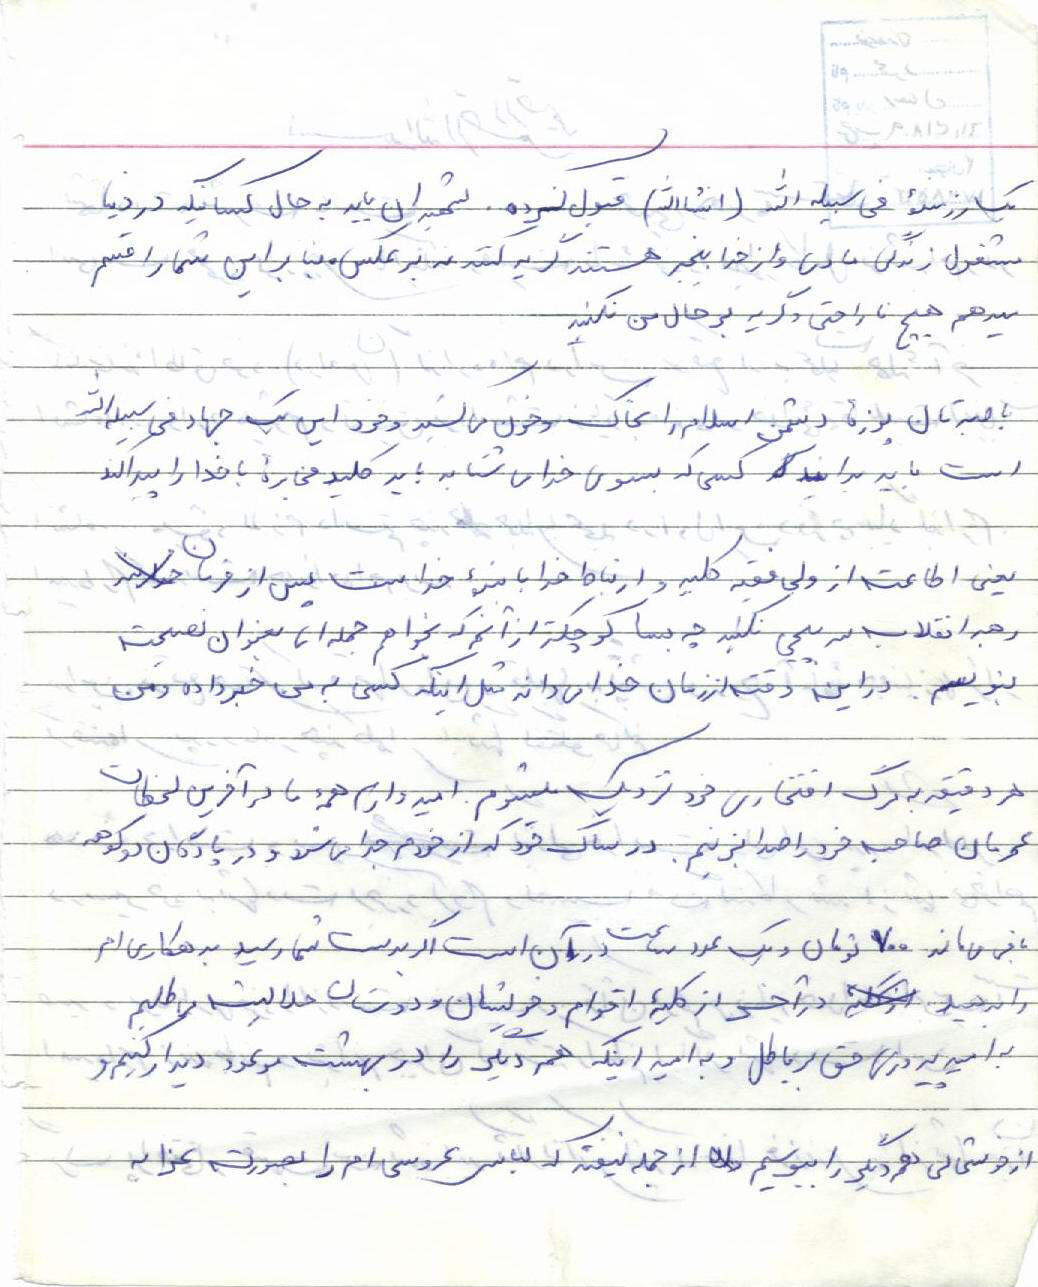 یک رزمندۀ فی سبیله الله (انشاالله) قبول کرده. شهیدان باید به حال کسانیکه در دنیا
مشغول زندگی مادی و از خدا بیخبر هستند گریه کنند نه برعکس بنابراین شما را قسم
میدهم هیچ ناراحتی و گریه بر حال من نکنید
با صبرتان پوزۀ دشمن اسلام را بخاک و خون می کشید و خود این یک جهاد فی سبیل الله
است باید بدانید کسی که بسوی خدا می شتابد باید کلید مخابرۀ با خدا را پیدا کند
یعنی اطاعت از ولی فقیه کلید و ارتباط خدا با بندۀ خداست پس از فرمان
رهبر انقلاب سرپیچی نکنید چه بسا کوچکتر از آنم که بخواهم جمله ای بعنوان نصیحت
بنویسم. در این وقت از زمان خدا می داند مثل اینکه کسی به من خبر داده و من
هر دقیقه به مرگ افتخاری خود نزدیک میشوم. امیدوارم همۀ ما در آخرین لحظات
عمرمان صاحب خود را صدا بزنیم. در ساک خود که از خودم جدا می شود و در پادگان دوکوهه
باقی می ماند ۷۰۰ تومان و یک عدد ساعت در آن است اگر بدست شما رسید بدهکاری ام
را بدهید. در آخر از کلیۀ اقوام و خویشان و دوستان حلالیت می طلبم
به امید پیروزی حق بر باطل و به امید اینکه همدیگر را در بهشت موعود دیدار کنیم و
از خوشحالی همدیگر را ببوسیم از جمله نیفته که لباس عروسی ام را بصورت